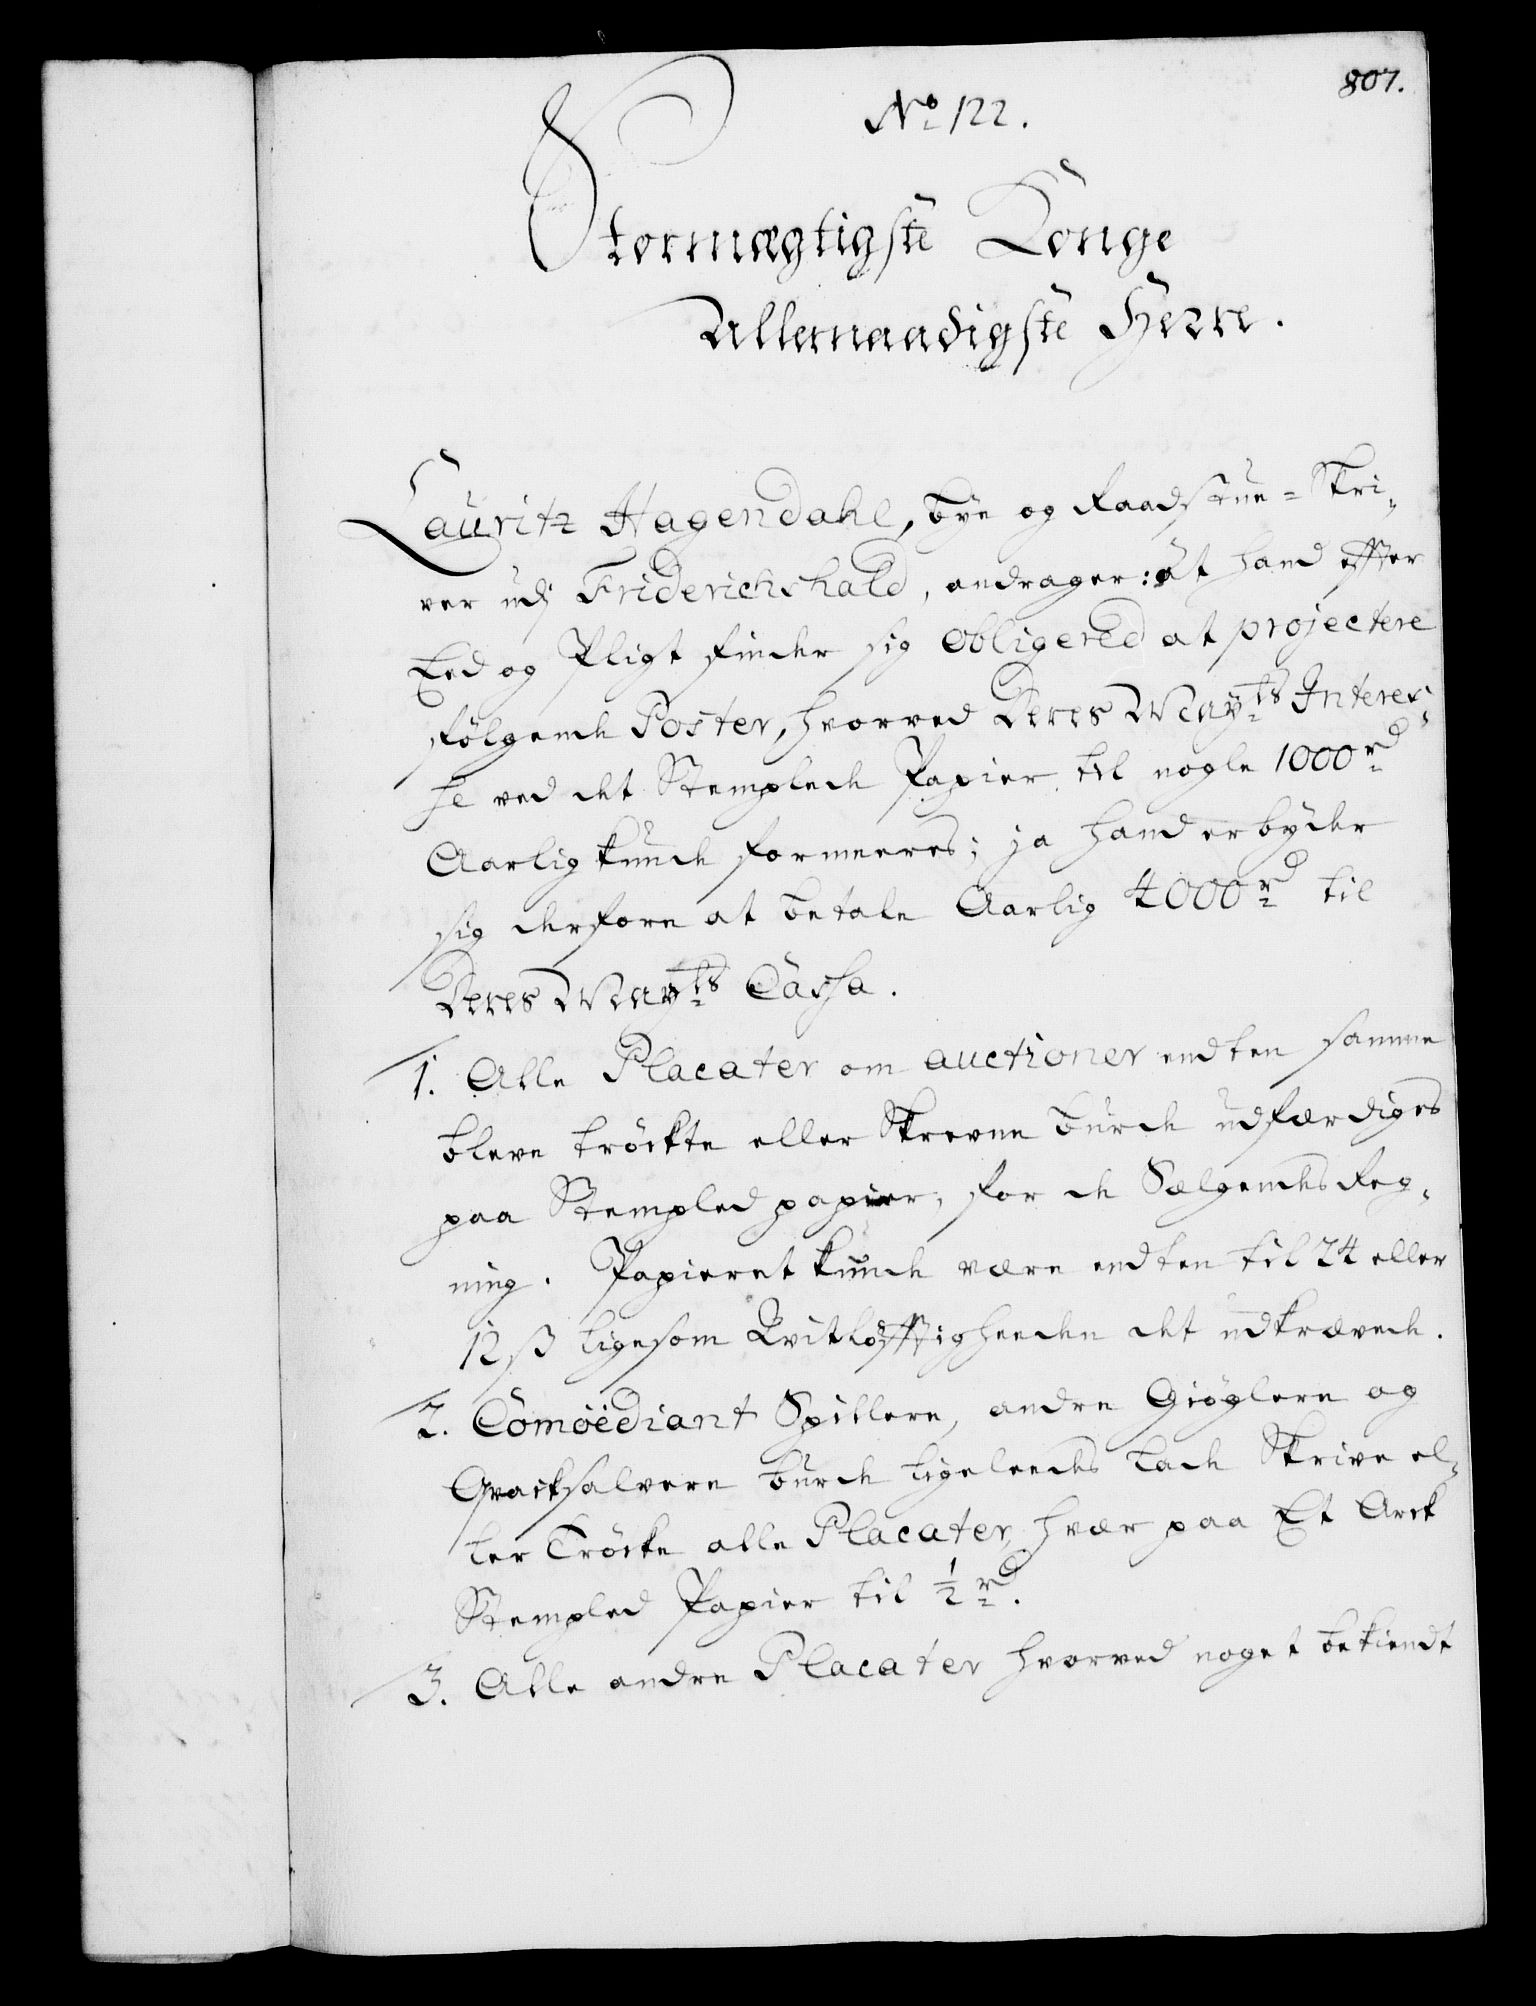 807.
No 122.
Stormægtigste Konge
Allernaadigste Herre.
Lauritz Hagendahl, bÿe og Raadstue-Skri-
ver udj Friderichshald, andrager: at hand effter
Eed og Pligt finder sig obligered at projectere
følgende Poster, hvorved Deres Mayts Interes-
se ved det Stemplede Papier til nogle 1000 rd
Aarlig kunde formeeres; ja hand erbyder
sig derfore at betale Aarlig 4000 rd til
Deres Mayts Cassa.
1. Alle Placater om auctioner endten samme
bleve tröckte eller Skrevne burde udfærdiges
paa Stempled papier, for de Sælgendes Reg-
ning. Papieret kunde være endten til 24 eller
12 ß ligesom Vitløfftigheeden det udkrævede.
2. Comoëdiant Spillere, andre Giøglere og
Qvacksalvere burde ligeleedes lade Skrive el-
ler Tröcke alle Placater, hvær paa Et Arck
Stempled Papier til ½ rd.
3. Alle andre Placater hvorved noget bekiendt